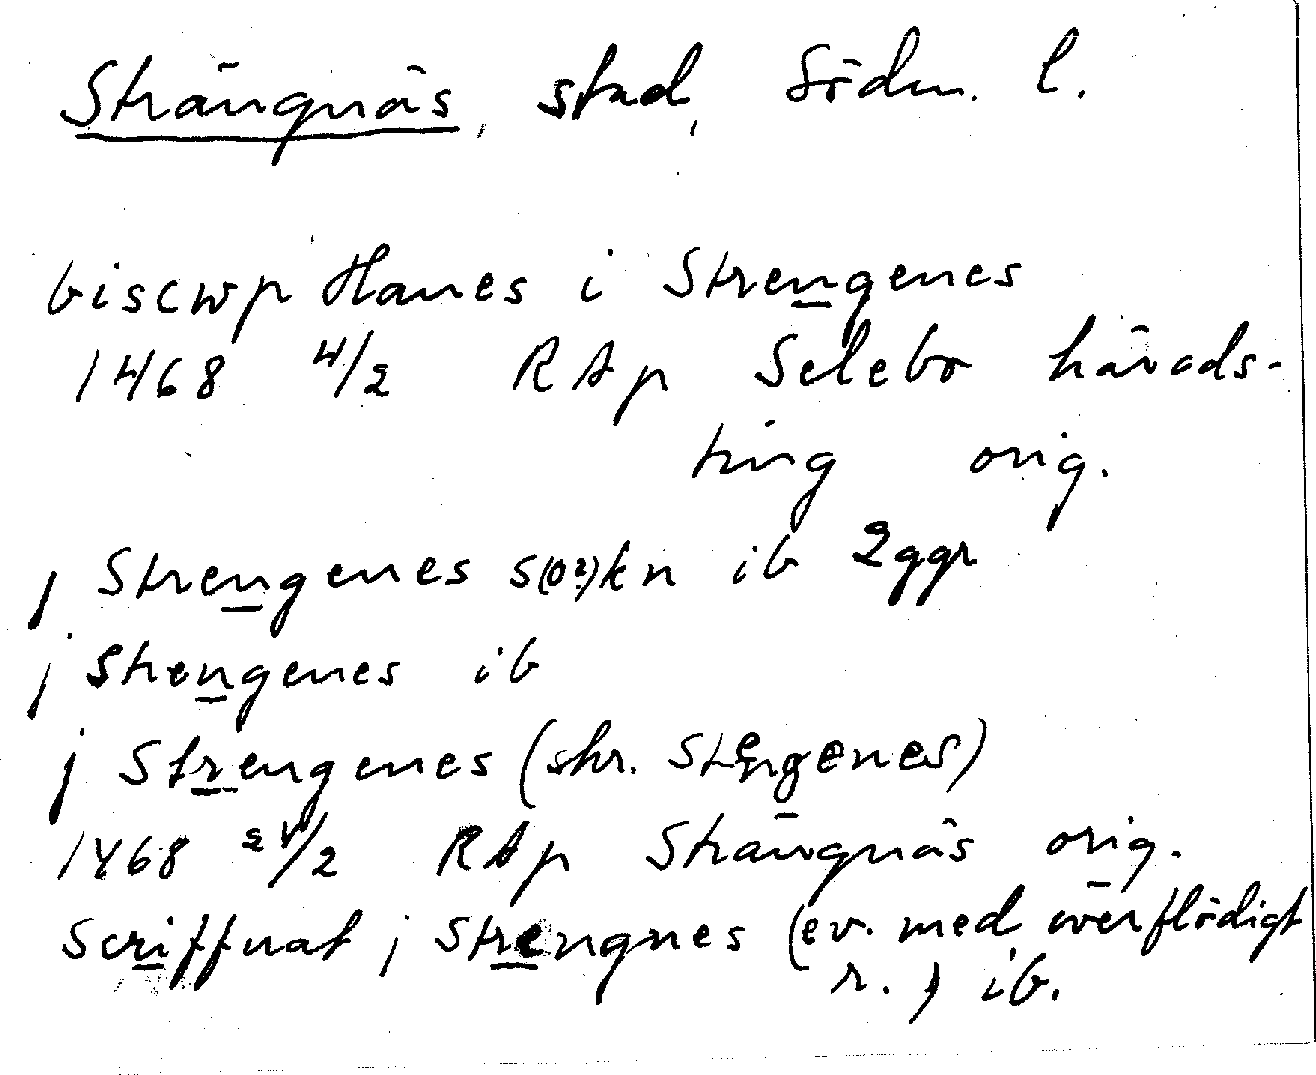 Strängnäs, stad, Söderm. l.
biscwp Hanes i Strengenes
1468 4/2 RAp Selebo härads-
ting orig.
j Strengenes s(o?)kn ib 2ggr
j Strengenes ib
j Strengenes (skr. Stengenes)
1468 24/2 RAp Strängnäs orig.
Scriffuat j Strengnes (ev. med överflödigt
r.) ib.